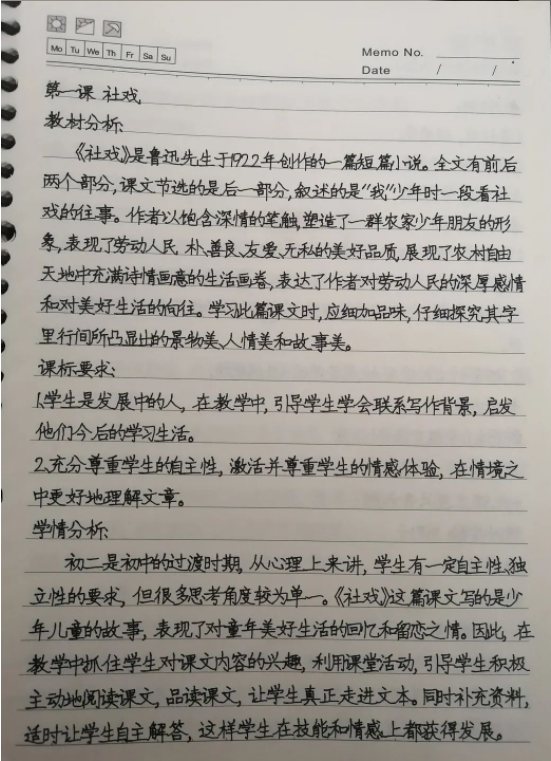 Mo Tu We Th Fr Sa Su
Memo No.
Date / /
第一课 社戏
教材分析:
《社戏》是鲁迅先生于1922年创作的一篇短篇小说。全文有前后
两个部分,课文节选的是后一部分,叙述的是“我”少年时一段看社
戏的往事。作者以饱含深情的笔触,塑造了一群农家少年朋友的形
象,表现了劳动人民 朴、善良、友爱、无私的美好品质,展现了农村自由
天地中充满诗情画意的生活画卷,表达了作者对劳动人民的深厚感情
和对美好生活的向往。学习此篇课文时,应细加品味,仔细探究其字
里行间所凸显出的景物美、人情美和故事美。
课标要求:
1.学生是发展中的人,在教学中,引导学生学会联系写作背景,启发
他们今后的学习生活。
2.充分尊重学生的自主性,激活并尊重学生的情感体验,在情境之
中更好地理解文章。
学情分析:
初二是初中的过渡时期,从心理上来讲,学生有一定自主性、独
立性的要求,但很多思考角度较为单一。《社戏》这篇课文写的是少
年儿童的故事,表现了对童年美好生活的回忆和留恋之情。因此,在
教学中抓住学生对课文内容的兴趣,利用课堂活动,引导学生积极
主动地阅读课文,品读课文,让学生真正走进文本。同时补充资料,
适时让学生自主解答,这样学生在技能和情感上都获得发展。